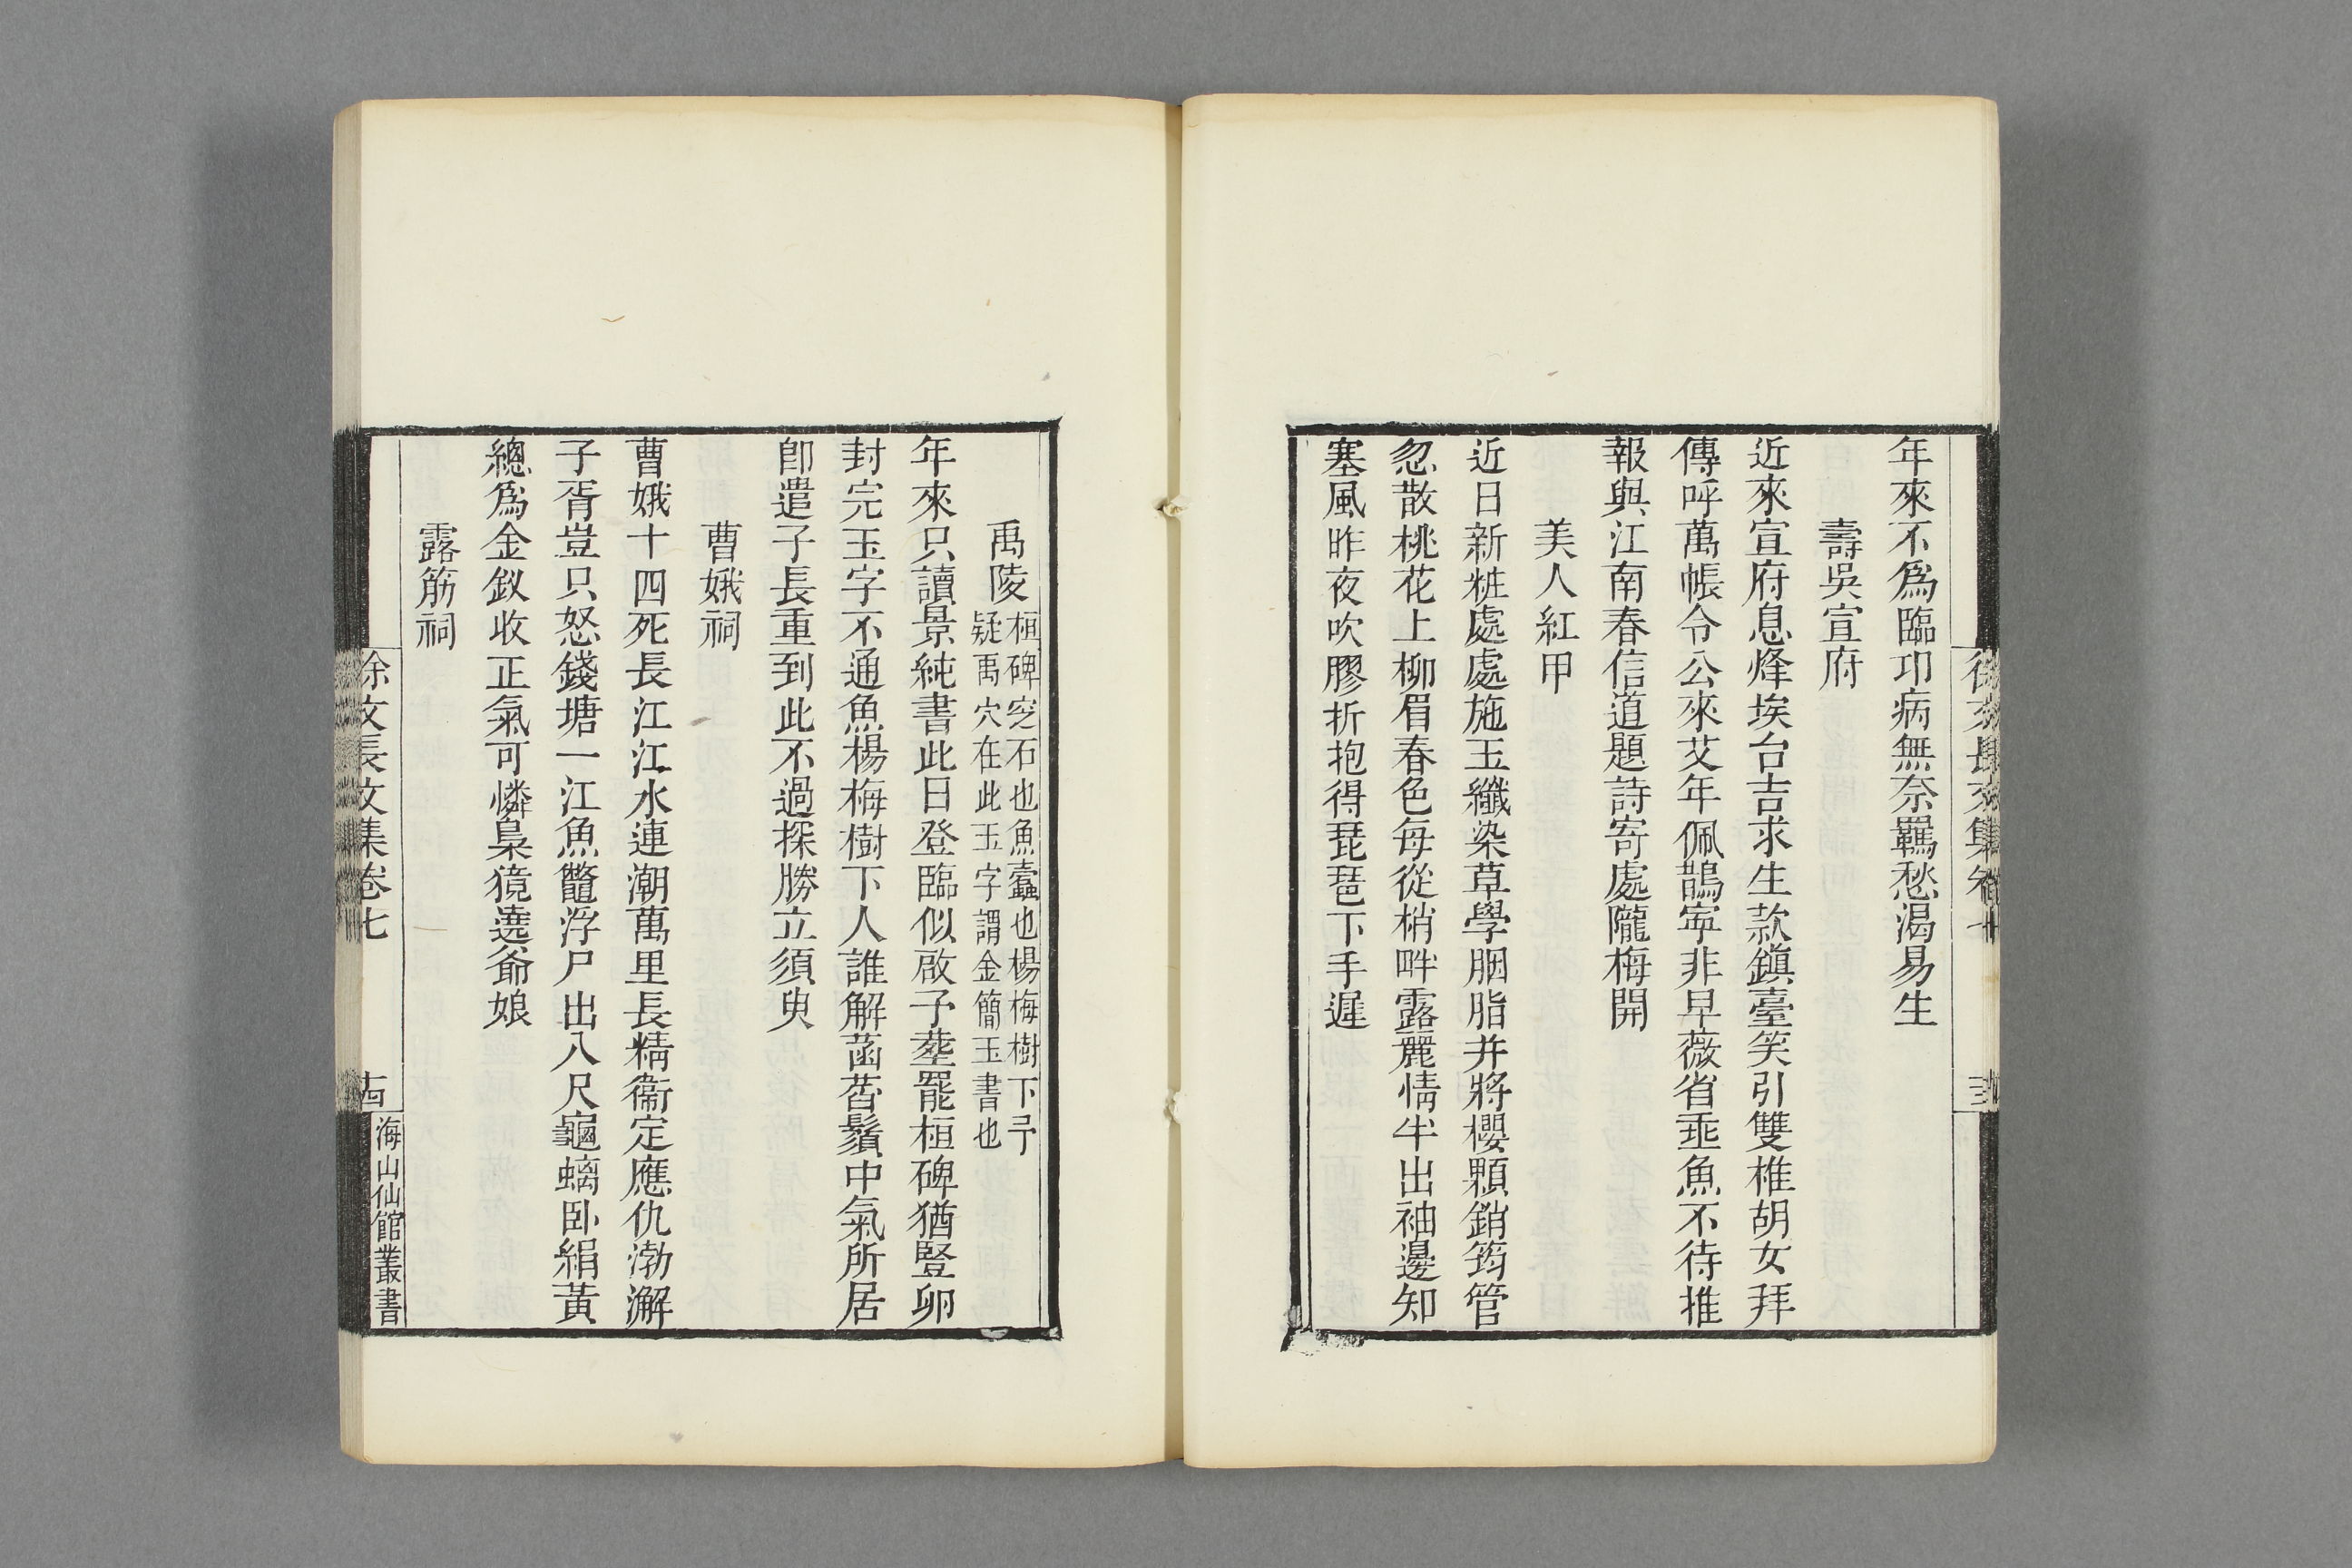 年來不爲臨卭病無奈羈愁渴易生
壽吳宣府
近來宣府息烽埃台吉求生款鎭臺笑引雙椎胡女拜
傳呼萬帳令公來艾年佩鵲寕非早薇省乖魚不待推
報與江南春信道題詩寄處隴梅開
美人紅甲
近日新粧處處施玉纖染草學胭脂并將櫻顆銷筠管
忽散桃花上柳眉春色每從梢畔露麗情半出袖邊知
塞風昨夜吹膠折抱得琵琶下手遲
徐文長文集卷七
禹陵
桓碑窆石也魚蠹也楊梅樹下予
疑禹穴在此玉字謂金簡玉書也
年來只讀景純書此日登臨似啟予葬罷桓碑猶豎卯
封完玉字不通魚楊梅樹下人誰解菡萏鬚中氣所居
卽遣子長重到此不過探勝立須臾
曹娥祠
曹娥十四死長江江水連潮萬里長精衞定應仇渤澥
子胥豈只怒錢塘一江魚鼈浮尸出八尺龜螭卧絹黃
總爲金釵收正氣可憐梟獍遶爺娘
露筋祠
徐文長文集卷七
古
海山仙館叢書